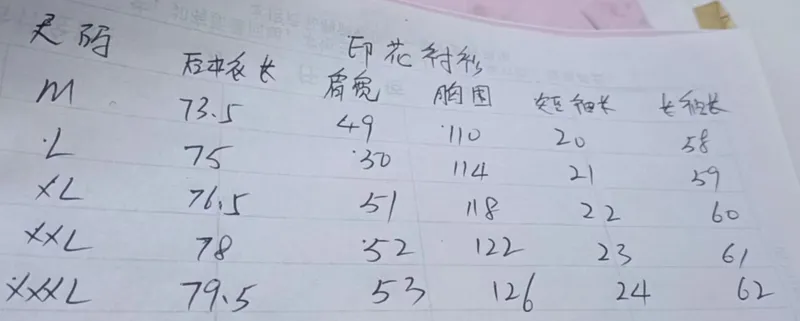 尺码 印花衬衫
后中衣长 肩宽 胸围 短袖长 长袖长
M 73.5 49 110 20 58
L 75 50 114 21 59
XL 76.5 51 118 22 60
XXL 78 52 122 23 61
XXXL 79.5 53 126 24 62